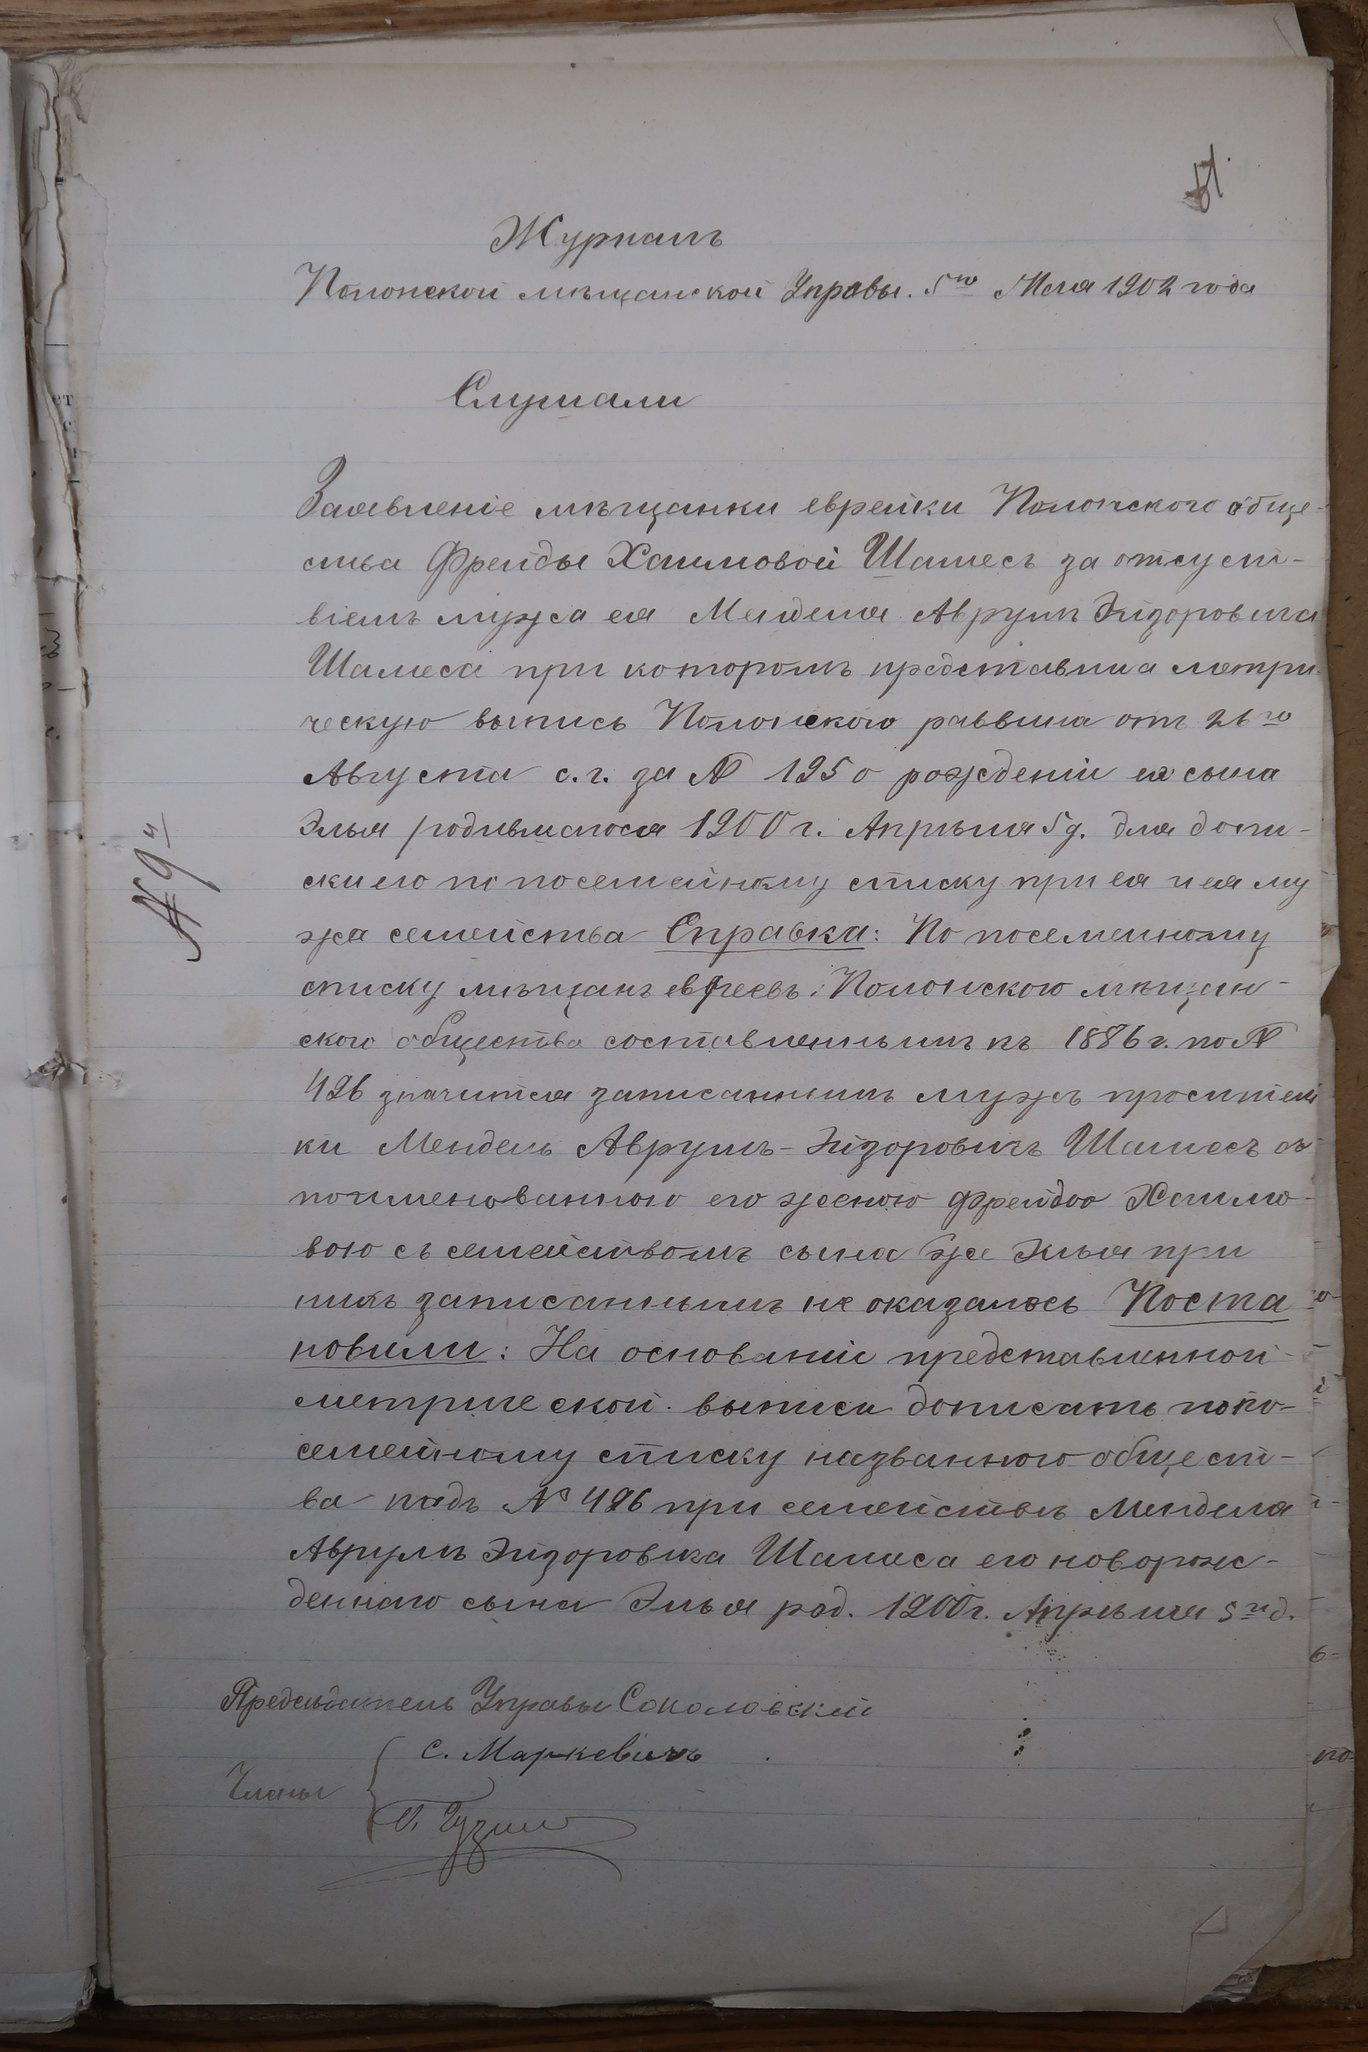 51.
Журналъ
Полонской мѣщанской Управы. 5го Мая 1902 года
Слушали
Заявленіе мѣщанки еврейки Полонского обще-
ства Фрейды Хаимовой Шамесъ за отсуст-
віемъ мужа ея Менделя Аврумъ Эйзоровича
Шамеса при которомъ представила метри-
ческую выпись Полонского раввина отъ 26го
Августа с.г. за № 195 о рожденіи ея сына
Элья родившагося 1900 г. Апрѣля 5 д. для допи-
ски его по посемейному списку при ея и ея му
жа семейства Справка: По посемейному
списку мѣщанъ евреевъ Полонского мѣщан-
ского общества составленнымъ къ 1886 г. по №
426 значится записаннымъ мужъ просител
ки Мендель Аврумъ-Эйзоровичъ Шамесъ съ
поименованною его женою Фрейдою Хаимо-
вою съ семействомъ сына же Элья при
нихъ записаннымъ не оказалось Поста
новили: На основаніи представленной
метрической выписи дописать по по-
семейному списку названного общест-
ва подъ № 426 при семействѣ Менделя
Аврумъ Эйзоровича Шамеса его новорож-
денного сына Элья род. 1900 г. Апрѣля 5го д.
Предсѣдатель Управы Соколовскій
С. Маркевичъ
Члены
№ 9